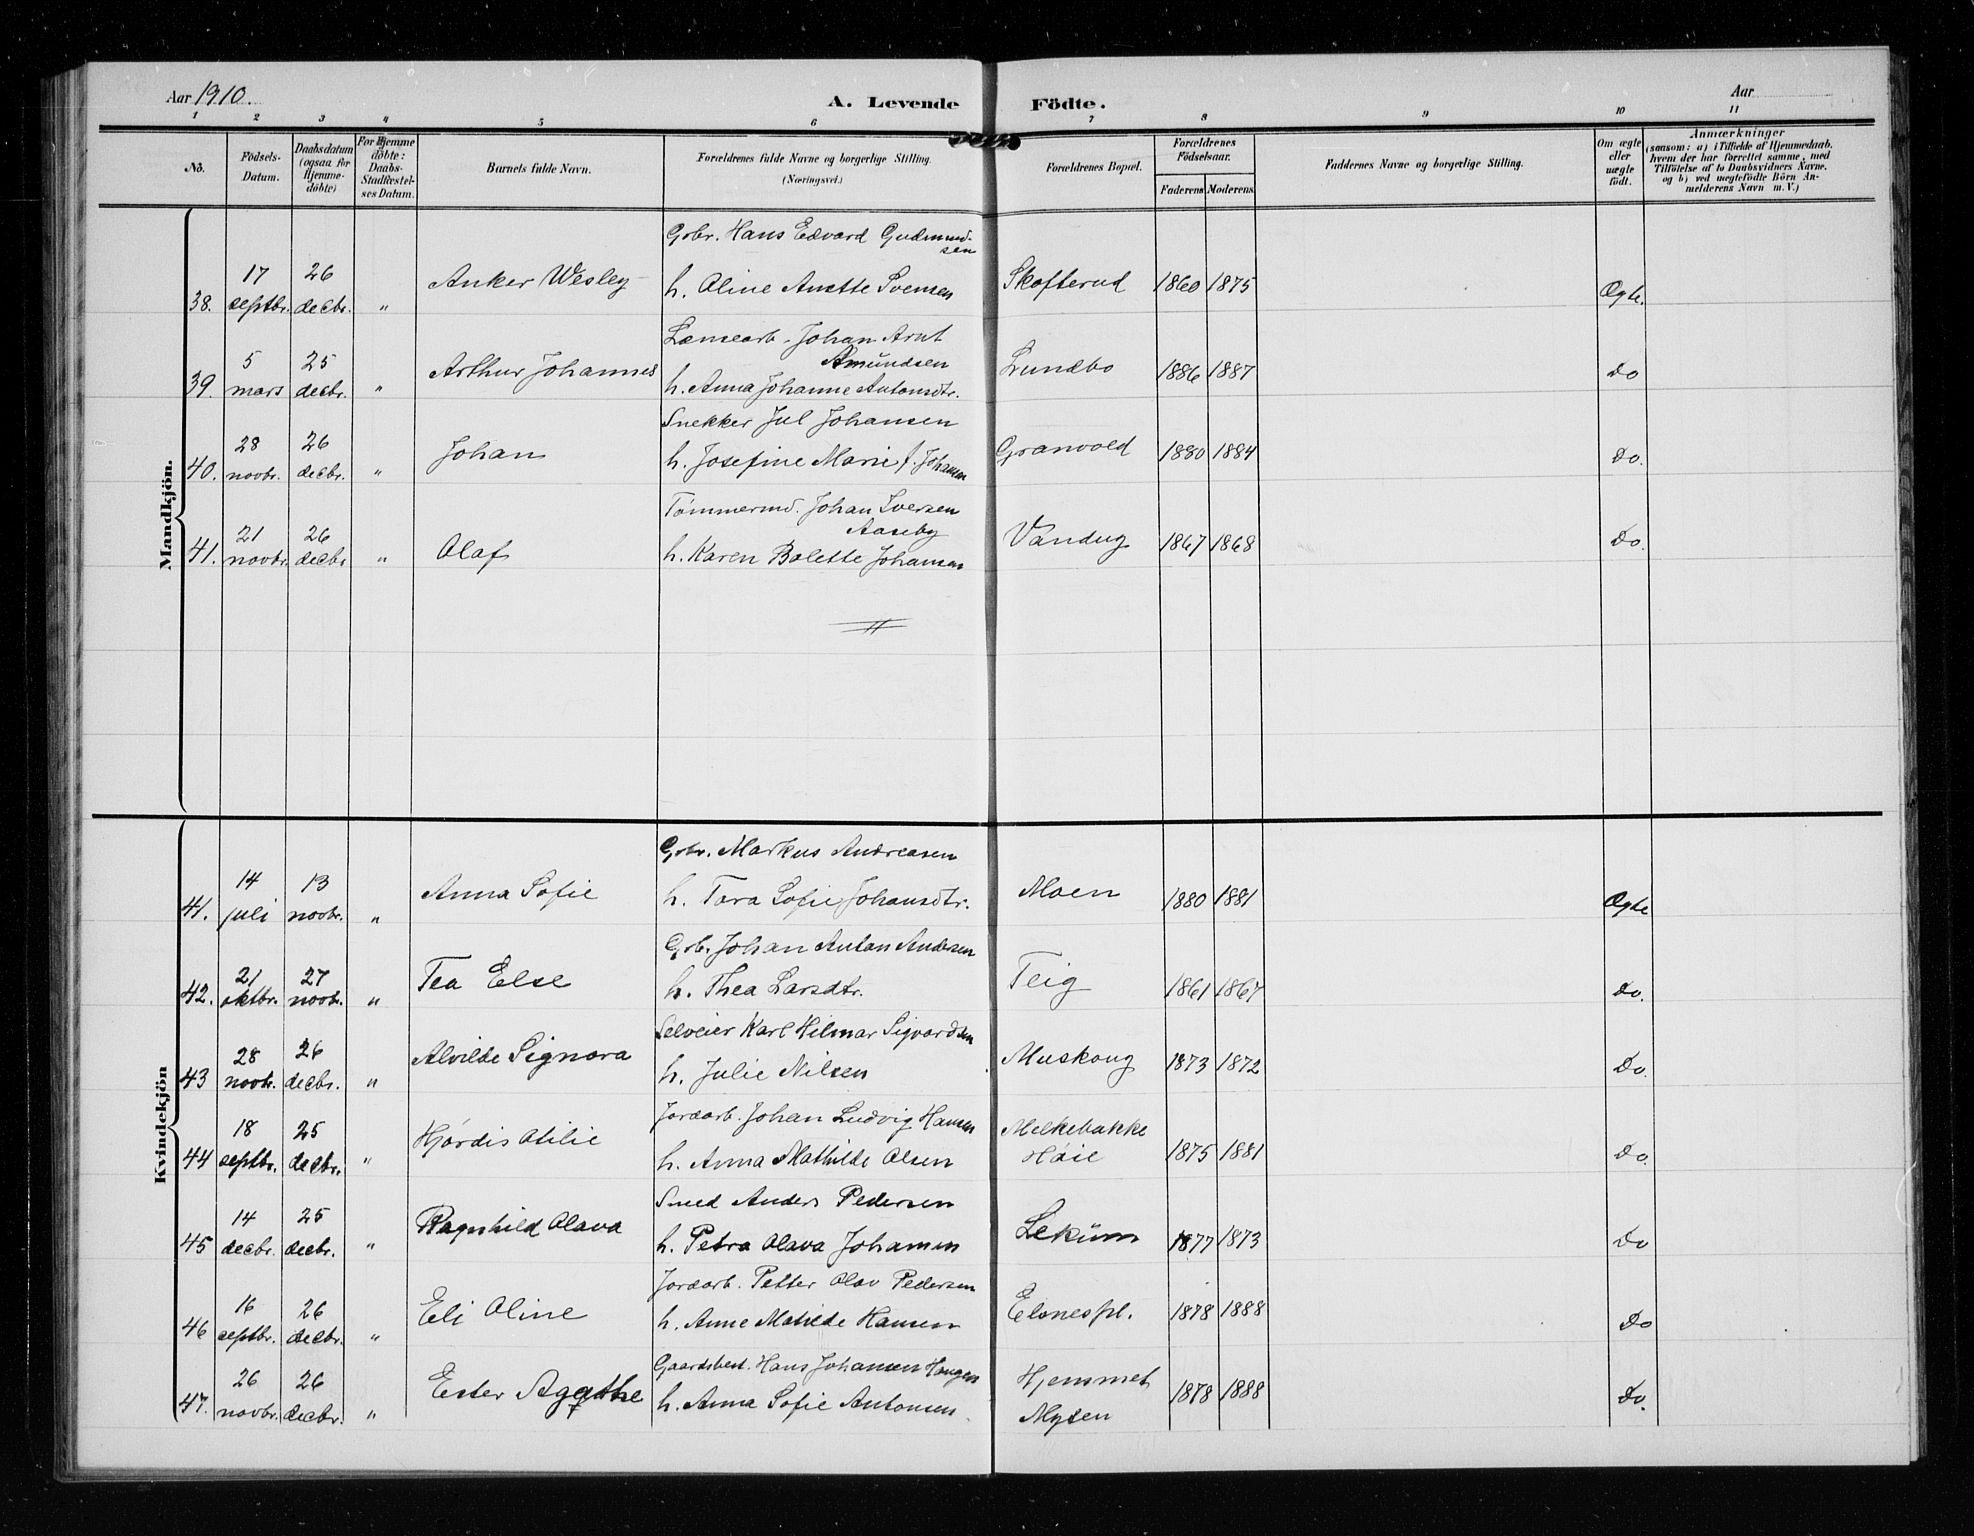 Aar 1910.
A. Levende Födte.
Aar
1 2 3 4 5 6 7 8 9 10 11
No.
Födsels-Datum.
Daabsdatum (ogsaa for Hjemme-döbte)
For Hjemme döbte: Daabs-Stadfæstel-ses Datum.
Barnets fulde Navn.
Forældrenes fulde Navne og borgerlige Stilling.
(Næringsvei.)
Forældrenes Bopæl.
Forældrenes Födselsaar.
Faderens Moderens
Faddernes Navne og borgerlige Stilling.
Om ægte eller uægte födt.
Anmærkninger
(saasom: a) i Tilfælde af Hjemmedaab, hvem der har forrettet samme, med Tilföielse af to Daabsvidners Navne. og b) ved uægtefödte Börn An-melderens Navn m. V.)
Mandkjön.
Gbr. Hans Edvard Gudmund-
sen
38. 17 septbr. 26 decbr. " Anker Wesley h. Oline Anette Svensen Skofterud 1860 1875 Ægte.
Lænsearb. Johan Arnt
Amundsen
39. 5 mars 25 decbr. " Arthur Johannes h. Anna Johanne Antonsdtr. Lundbo 1886 1887 Do
Snekker Jul Johansen
40. 28 novbr. 26 decbr. " Johan h. Josefine Marie f. Johansen Granvold 1880 1884 Do.
Tømmermd. Johan Iversen
Aaseby
41. 21 novbr. 26 decbr " Olaf h. Karen Bolette Johansen Vandug 1867 1868 Do.
Kvindekjön
Gbr. Markus Andreasen
41. 14 juli 13 novbr. " Anna Sofie h. Tora Sofie Johansdtr. Moen 1880 1881 Ægte
Grb. Johan Anton Andersen
42. 21 oktbr. 27 novbr. " Tea Else h. Thea Larsdtr. Teig 1861 1867 Do.
Selveier Karl Hilmar Sigvardsen
43 28 novbr. 26 decbr. " Alvilde Signora h. Julie Nilsen Muskoug 1873 1872 Do.
Jordarb. Johan Ludvig Hansen
44 18 septbr. 25 decbr. " Hjørdis Otilie h. Anna Mathilde Olsen Melkebakke Høie 1875 1881 Do.
Smed Anders Pedersen
45 14 decbr. 25 decbr. " Ragnhild Olava h. Petra Olava Johansen Lekum 1877 1873 Do
Jordarb. Petter Olav Pedersen
46 16 septbr. 26 decbr. " Eli Oline h. Anne Matilde Hansen Elsnespl. 1878 1888 Do
Gaardsbest. Hans Johansen Haugen
47. 26 novbr. 26 decbr. " Ester Agathe h. Anna Sofie Antonsen Hjemmet Mysen 1878 1888 Do.